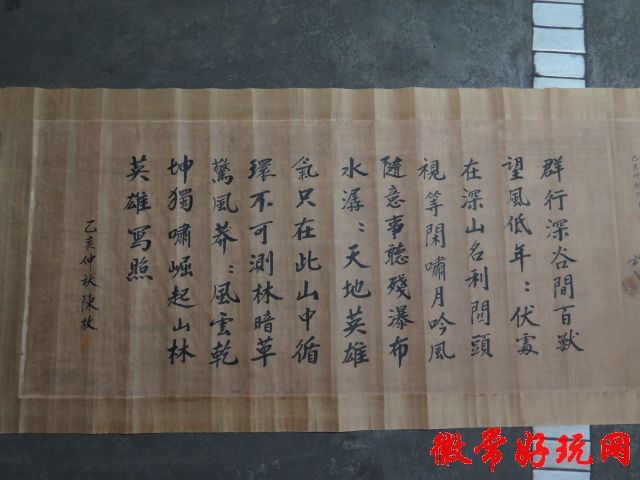 群行深谷間百獸
望風低年：伏處
在深山名利関頭
視等閑嘯月吟風
隨意事聽殘瀑布
水潺：天地英雄
氣只在此山中循
環不可測林暗草
驚風莽：風雲乾
坤獨嘯崛起山林
英雄寫照
乙亥仲秋陳枚
徽常好玩网